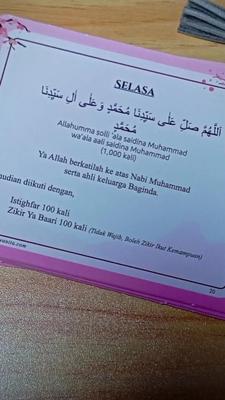 SELASA
اَللّٰهُمَّ صَلِّ عَلٰى سَيِّدِنَا مُحَمَّدٍ وَعَلٰى اٰلِ سَيِّدِنَا
مُحَمَّدٍ
Allahumma solli 'ala saidina Muhammad
wa'ala aali saidina Muhammad
(1,000 kali)
Ya Allah berkatilah ke atas Nabi Muhammad
serta ahli keluarga Baginda.
udian diikuti dengan,
Istighfar 100 kali
Zikir Ya Baari 100 kali (Tidak Wajib, Boleh Zikir Ikut Kemampuan)
20